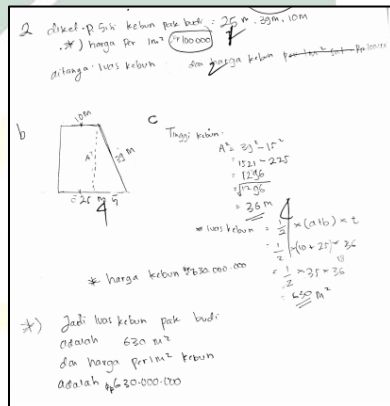 2 diket. p. Sisi kebun pak budi : 25 m . 39 m . 10 m
*) harga per 1m² Rp 100 000
ditanya : luas kebun dan harga kebun
b
10 m
A
39 m
25 m
C
Tinggi kebun :
A² = 39² - 15²
= 1521 - 225
= 1296
= √1296
= 36 m
* luas kebun = 1/2 × (a+b) × t
= 1/2 × (10 + 25) × 36
18
= 1/2 × 35 × 36
= 630 m²
* harga kebun Rp 630.000.000
*) Jadi luas kebun pak budi
adalah 630 m²
dan harga per 1m² kebun
adalah Rp 630.000.000